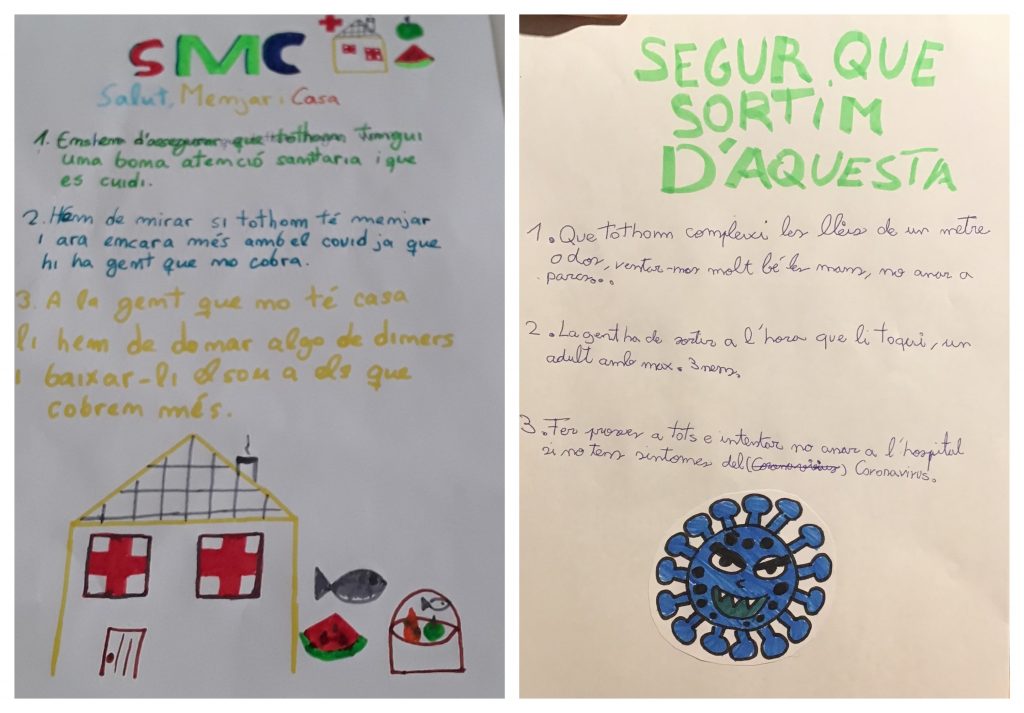 SMC
Salut, Menjar i Casa
1. Ens hem d'assegurar que tothom tingui
una bona atenció sanitaria i que
es cuidi.
2. Hem de mirar si tothom té menjar
i ara encara més amb el covid ja que
hi ha gent que no cobra.
3. A la gent que no té casa
li hem de donar algo de diners
i baixar-li el sou a els que
cobren més.
SEGUR QUE
SORTIM
D'AQUESTA
1. Que tothom compleixi les lleis de un metre
o dos, rentar-nos molt bé les mans, no anar a
parcs...
2. La gent ha de sortir a l'hora que li toqui, un
adult amb max. 3 nens.
3. Fer proves a tots e intentar no anar a l'hospital
si no tens sintomes del (Coronavirius) Coronavirus.